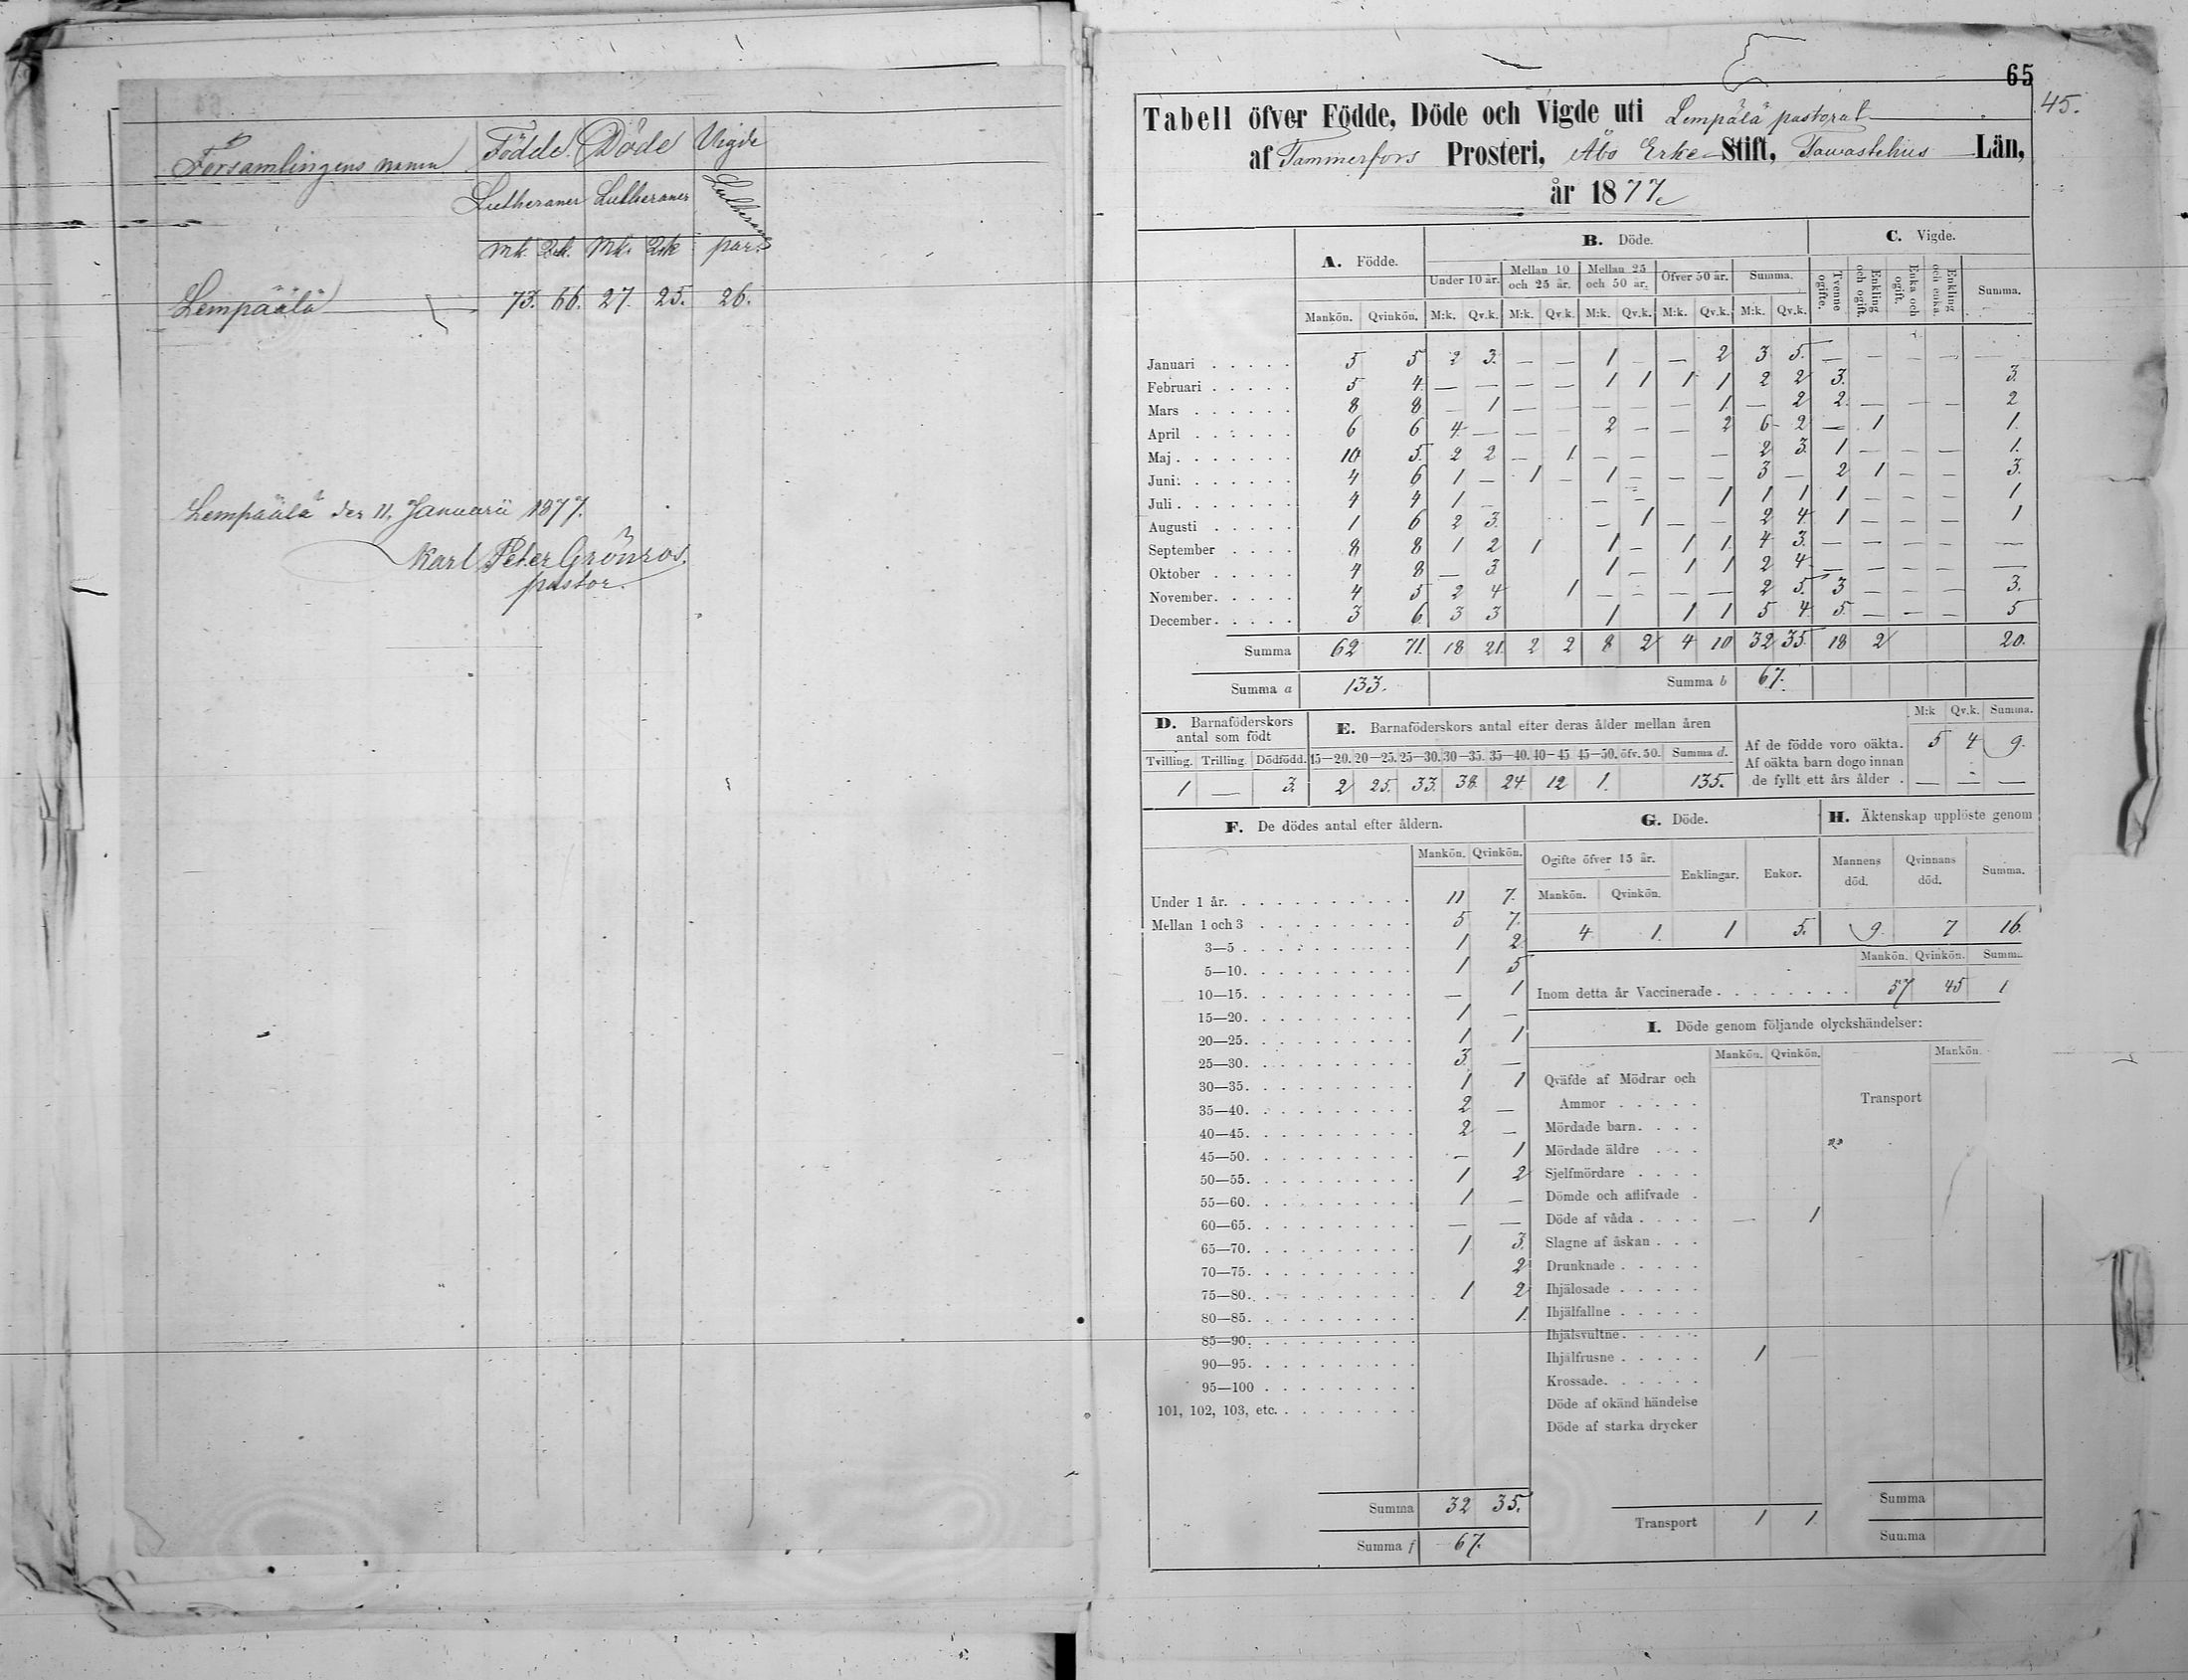 Församlingens namn Födde. Döde Vigde
Lutheraner Lutheraner Lutheraner
Mk. Qvk. Mk. Qvk par.
Lempäälä 73. 66. 27. 25. 26.
Lempäälä den 11. Januarii 1877.
Karl Peter Grönros.
pastor.
65
45.
Tabell öfver Födde, Döde och Vigde uti Lempälä pastorat
af Tammerfors Prosteri, Åbo Erke- Stift, Tawastehus Län,
år 1877.
A. Födde. B. Döde. C. Vigde.
Under 10 år. Mellan 10 och 25 år. Mellan 25 och 50 år. Öfver 50 år. Summa. Tvenne ogifte. Enkling och ogift Enka och ogift. Enkling och enka Summa.
Mankön. Qvinkön. M:k. Qv.k. M:k. Qv.k. M:k. Qv.k. M:k. Qv.k. M:k. Qv.k.
Januari 5 5 2 3. — — 1 — — 2 3 5. — — — — —
Februari 5 4 — — — — 1 1 1 1 2 2 3. 3.
Mars 8 8 — 1 — — — — — 1. — 2 2. — — — 2
April 6 6 4. — — — 2 — — 2 6- 2 — 1 1.
Maj 10 5. 2 2 — 1. — — — 2 3. 1 — — — 1.
Juni 4 6 1 — 1 — 1 — — — 3 — 2 1 — — 3.
Juli 4 4 1 — — — 1 1 1 1 — — — 1
Augusti 1 6 2 3. — 1 — — 2 4. 1 — — — 1
September 8 8 1 2 1 1 — 1 1. 4 3. — — — — —
Oktober 4 8 — 3 1 — 1 1 2 4. — — — — —
November 4 5 2 4 1 — — — — 2 5. 3 — — — 3.
December 3 6. 3 3 1 1 1 5 4 5. — — — 5
Summa 62 71. 18 21. 2 2 8 2 4 10 32 35. 18 2 20.
Summa a 133. Summa b 67.
D. Barnaföderskors antal som födt
Tvilling. Trilling Dödfödd.
1 — 3.
E. Barnaföderskors antal efter deras ålder mellan åren
15—20. 20—25. 25—30. 30—35. 35—40. 40—45 45—50. öfv. 50. Summa d.
2 25. 33. 38. 24. 12 1. 135.
M:k Qv.k. Summa.
Af de födde voro oäkta. 5 4 9.
Af oäkta barn dogo innan
de fyllt ett års ålder . — — —
F. De dödes antal efter åldern.
Mankön. Qvinkön.
Under 1 år. 11 7.
Mellan 1 och 3 5 7.
3—5 1 2
5—10. 1 5
10—15. — 1
15—20. 1 —
20—25. 1 1
25—30. 3. —
30—35. 1 1
35—40. 2 —
40—45. 2 —
45—50. — 1
50—55. 1 2
55—60. 1 —
60—65. — —
65—70. 1 3.
70—75. 2
75—80. 1 2
80—85. 1.
85—90.
90—95.
95—100
101, 102, 103, etc.
Summa 32 35.
Summa f 67.
G. Döde.
Ogifte öfver 15 år. Enklingar. Enkor.
Mankön. Qvinkön.
4 1. 1 5.
H. Äktenskap upplöste genom
Mannens död. Qvinnans död. Summa.
9. 7 16.
Mankön. Qvinkön.
Inom detta år Vaccinerade 57 45 1
I. Döde genom följande olyckshändelser:
Mankön. Qvinkön. Mankön
Qväfde af Mödrar och
Ammor
Transport
Mördade barn.
Mördade äldre
Sjelfmördare
Dömde och aflifvade
Döde af våda — 1
Slagne af åskan
Drunknade
Ihjälosade
Ihjälfallne
Ihjälsvultne
Ihjälfrusne 1 —
Krossade.
Döde af okänd händelse
Döde af starka drycker
Summa
Transport 1 1.
Summa